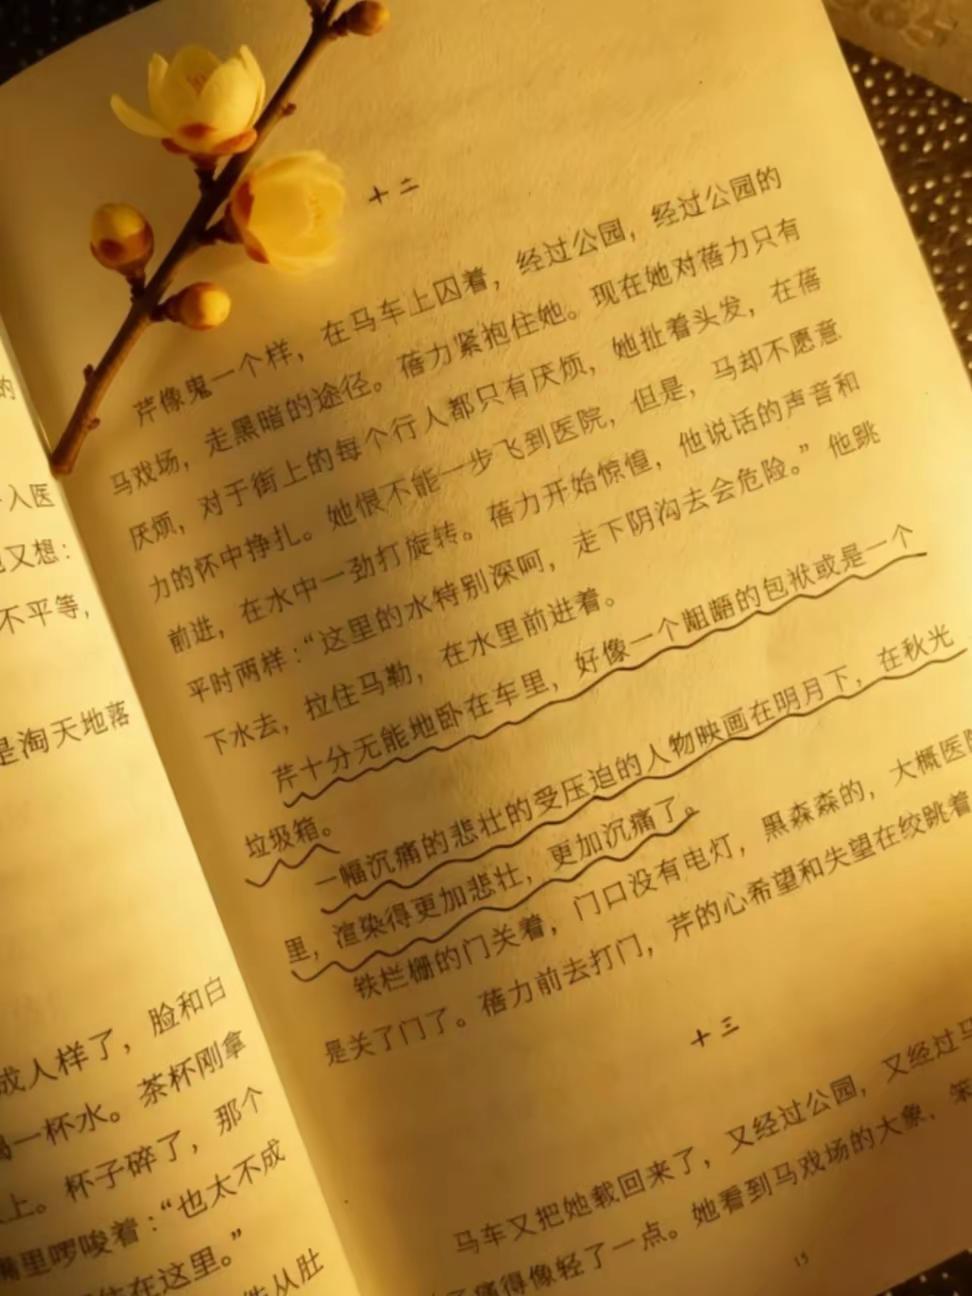 的
入医
又想：
不平等，
是淘天地落
成人样了，脸和白
一杯水。茶杯刚拿
上。杯子碎了，那个
嘴里啰唆着：“也太不成
在这里。”
从肚
十二
芹像鬼一个样，在马车上囚着，经过公园，经过公园的
马戏场，走黑暗的途径。蓓力紧抱住她。现在她对蓓力只有
厌烦，对于街上的每个行人都只有厌烦，她扯着头发，在蓓
力的怀中挣扎。她恨不能一步飞到医院，但是，马却不愿意
前进，在水中一劲打旋转。蓓力开始惊惶，他说话的声音和
平时两样：“这里的水特别深呵，走下阴沟去会危险。”他跳
下水去，拉住马勒，在水里前进着。
芹十分无能地卧在车里，好像一个龃龉的包袱或是一个
垃圾箱。
一幅沉痛的悲壮的受压迫的人物映画在明月下，在秋光
里，渲染得更加悲壮，更加沉痛了。
铁栏栅的门关着，门口没有电灯，黑森森的，大概医院
是关了门了。蓓力前去打门，芹的心希望和失望在绞跳着
十三
马车又把她载回来了，又经过公园，又经过马
痛得像轻了一点。她看到马戏场的大象，笨
15